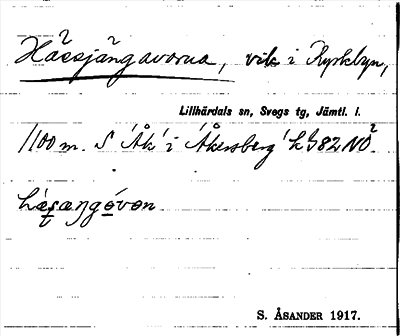 Hässjängavorna, vik i Ryskbyn,
Lillhärdals sn, Svegs tg, Jämtl. l.
1100 m. S 'Åk' i 'Åkersberg' k 982 NO².
S. ÅSANDER 1917.